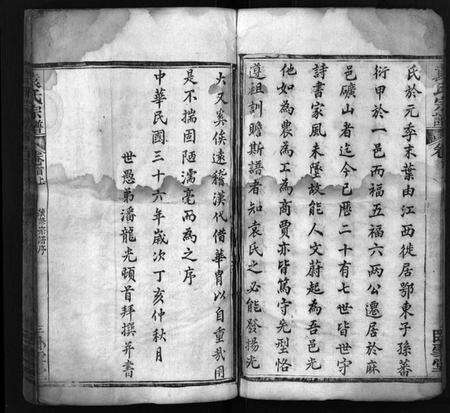 氏於元季末葉由江西徙居鄂東子孫蕃
衍甲於一邑而福五福六兩公遷居於麻
邑礦山者迄今已歷二十有七世皆世守
詩書家風未墜故能人文蔚起為吾邑光
他如為農為工為商賈亦皆篤守先型恪
遵祖訓瞻斯譜者知袁氏之必能發揚光
大又奚俟遠稽漢代借華胄以自重哉用
是不揣固陋濡亳而為之序
中華民國三十六年歲次丁亥仲秋月
世愚弟潘龍光頤首拜撰并書
袁氏宗譜 卷首上